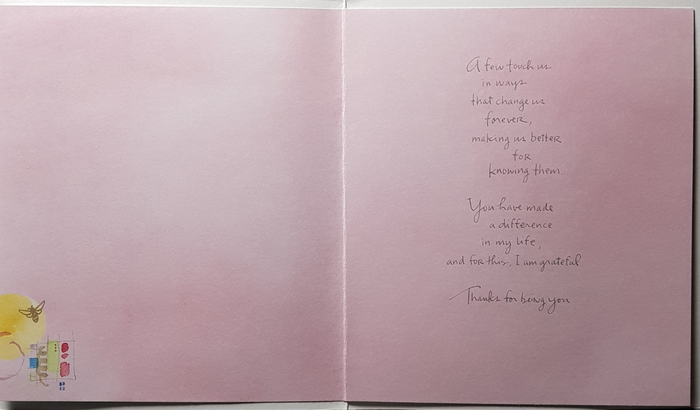 A few touch us
in ways
that change us
forever,
making us better
for
knowing them
You have made
a difference
in my life,
and for this, I am grateful
Thanks for being you